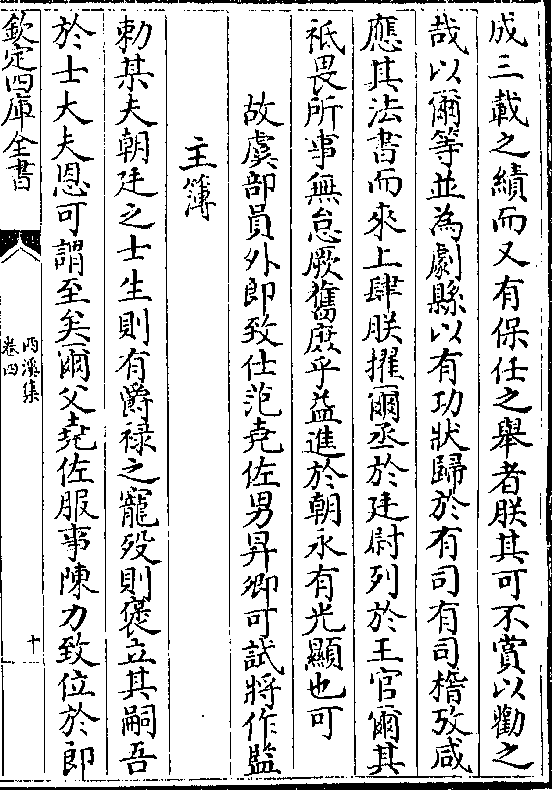 成三載之績而又有保任之舉者朕其可不賞以勸之
哉以爾等並為劇縣以有功狀歸於有司有司稽攷咸
應其法書而來上肆朕擢爾丞於廷尉列於王官爾其
祗畏所事無怠厥舊庶乎益進於朝永有光顯也可
故虞部員外郎致仕范堯佐男昇卿可試將作監
主簿
勅某夫朝廷之士生則有爵祿之寵殁則褒立其嗣吾
於士大夫恩可謂至矣爾父堯佐服事陳力致位於郎
欽定四庫全書
西溪集
卷四
十